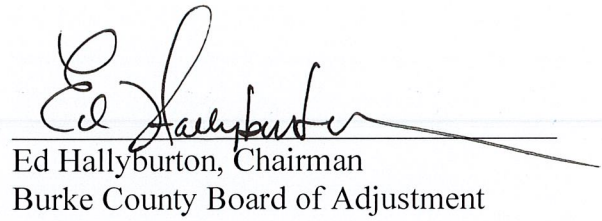 Ed Hallyburton
Ed Hallyburton, Chairman
Burke County Board of Adjustment